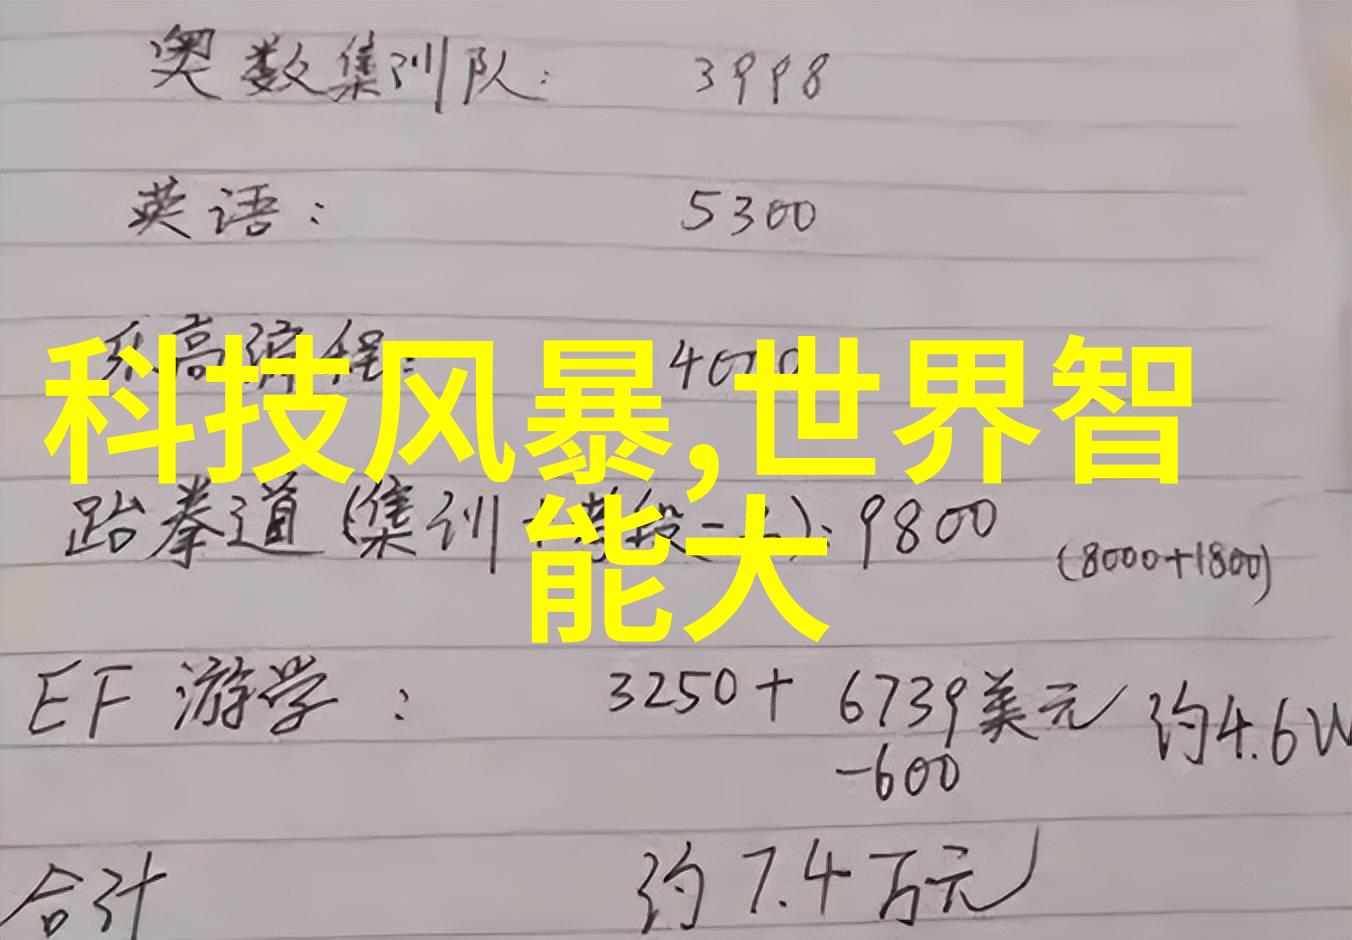 奥数集训队: 3998
英语: 5300
乐高编程: 4000
科技风暴,世界智
能大
跆拳道(集训+考段一二): 9800 (8000+1800)
EF 游学: 3250+ 6739美元 约4.6W
-600
合计 约7.4万元